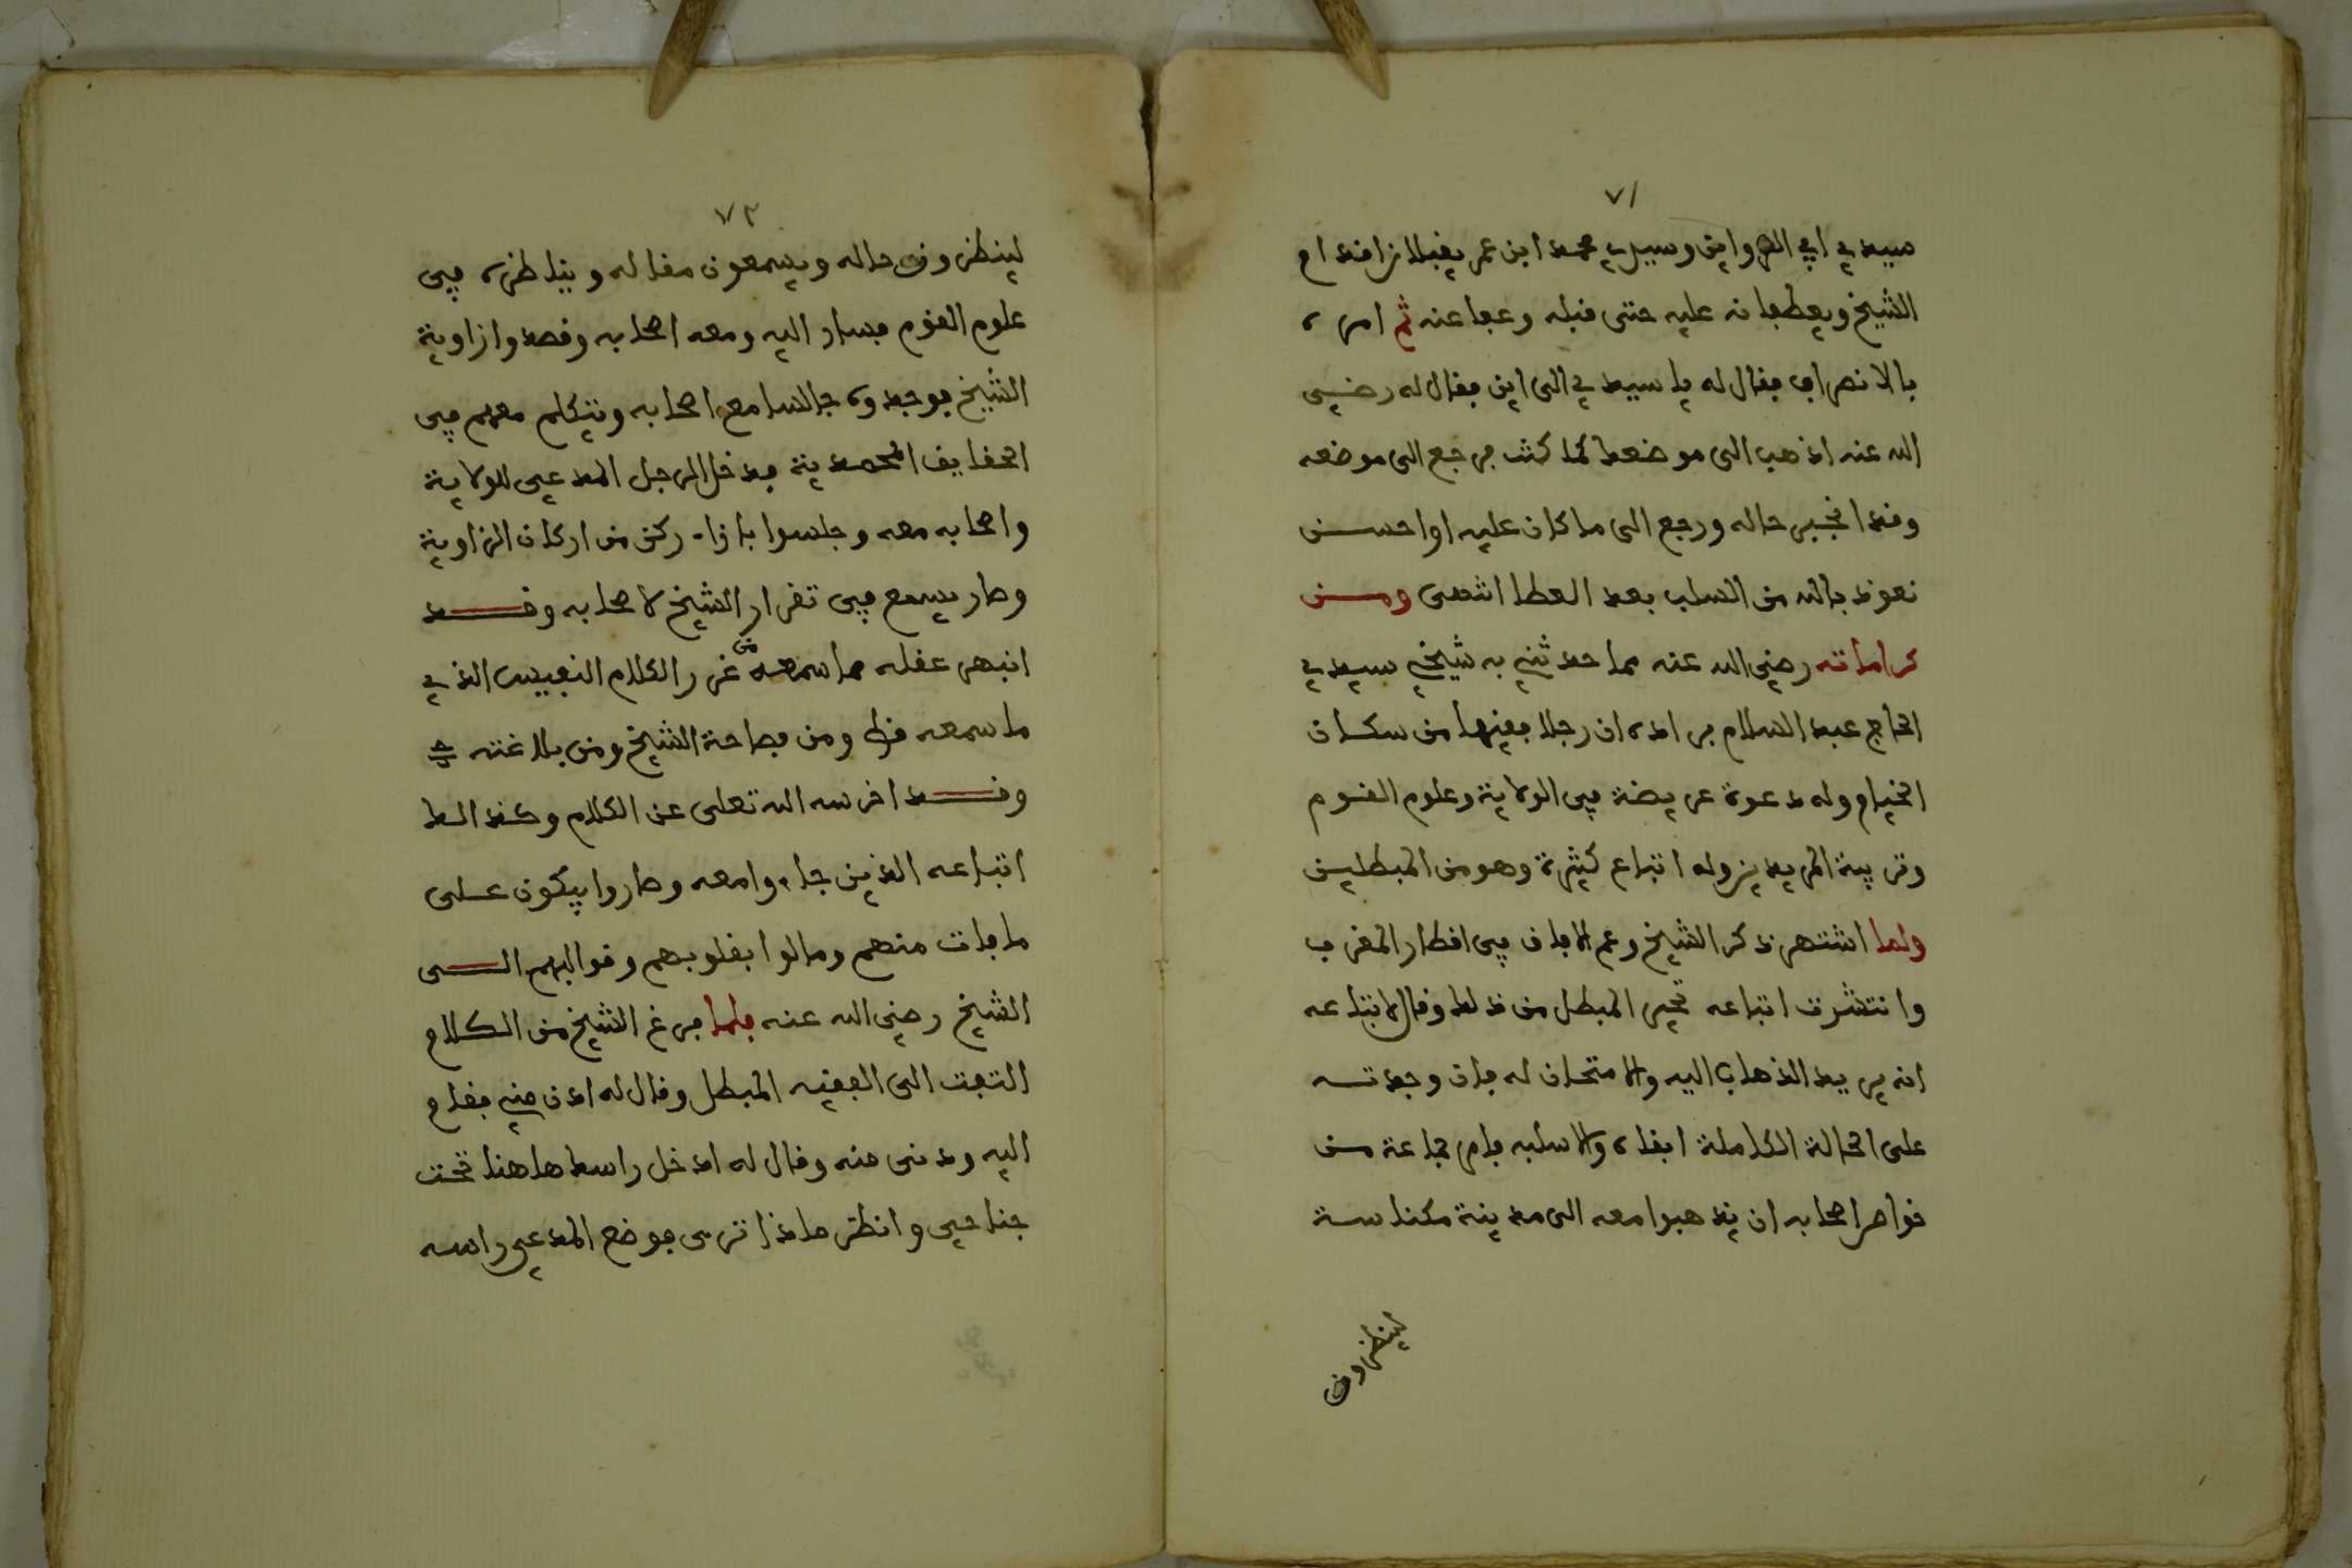 ٧١
سيدي ابي الرواين وسيدي محمد ابن عمر يقبلان اقدام
الشيخ ويعطفانه عليه حتى قبله وعفا عنه ثم امره
بالانصراف فقال له يا سيدي الى اين فقال له رضي
الله عنه اذهب الى موضعك كما كنت فرجع الى موضعه
وقد انجبر حاله ورجع الى ما كان عليه او احسن
نعوذ بالله من السلب بعد العطا انتهى ومن
كراماته رضي الله عنه مما حدثني به شيخي سيدي
الحاج عبد السلام مرادي ان رجلا فقيها من سكان
الخيام وله دعوة عريضة في الولاية وعلوم القوم
وتربية المريدين وله اتباع كثيرة وهو من المبطلين
ولما اشتهر ذكر الشيخ وعم الافاق في اقطار المغرب
وانتشرت اتباعه تحير المبطل من ذلك وقال لاتباعه
انه يريد الذهاب اليه والامتحان له فان وجدته
على الحالة الكاملة ابقاه والا سلبه فامر جماعة من
خواص اصحابه ان يذهبوا معه الى مدينة مكناسة
لينظرون
٧٢
لينظرون حاله ويسمعون مقاله ويناظره في
علوم القوم فسار اليه ومعه اصحابه وقصدوا زاوية
الشيخ فوجدوه جالسا مع اصحابه ويتكلم معهم في
الحقايق المحمدية فدخل الرجل المدعي للولاية
واصحابه معه وجلسوا بازاء ركن من اركان الزاوية
وصار يسمع في تقرار الشيخ لاصحابه وقد
انبهر عقله مما سمعه من غرر الكلام النفيس الذي
ما سمعه قط ومن فصاحة الشيخ ومن بلاغته
وقد اخرسه الله تعلى عن الكلام وكذالك
اتباعه الذين جاءوا معه وصاروا يبكون على
ما فات منهم ومالوا بقلوبهم وقوالبهم الى
الشيخ رضي الله عنه فلما فرغ الشيخ من الكلام
التفت الى الفقيه المبطل وقال له ادن مني فقام
اليه ودنى منه وقال له ادخل راسك هاهنا تحت
جناحي وانظر ماذا ترى فوضع المدعي راسه